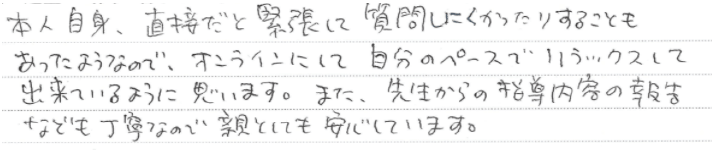 本人自身、直接だと緊張して質問しにくかったりすることも
あったようなので、オンラインにして自分のペースでリラックスして
出来ているように思います。また、先生からの指導内容の報告
なども丁寧なので親としても安心しています。